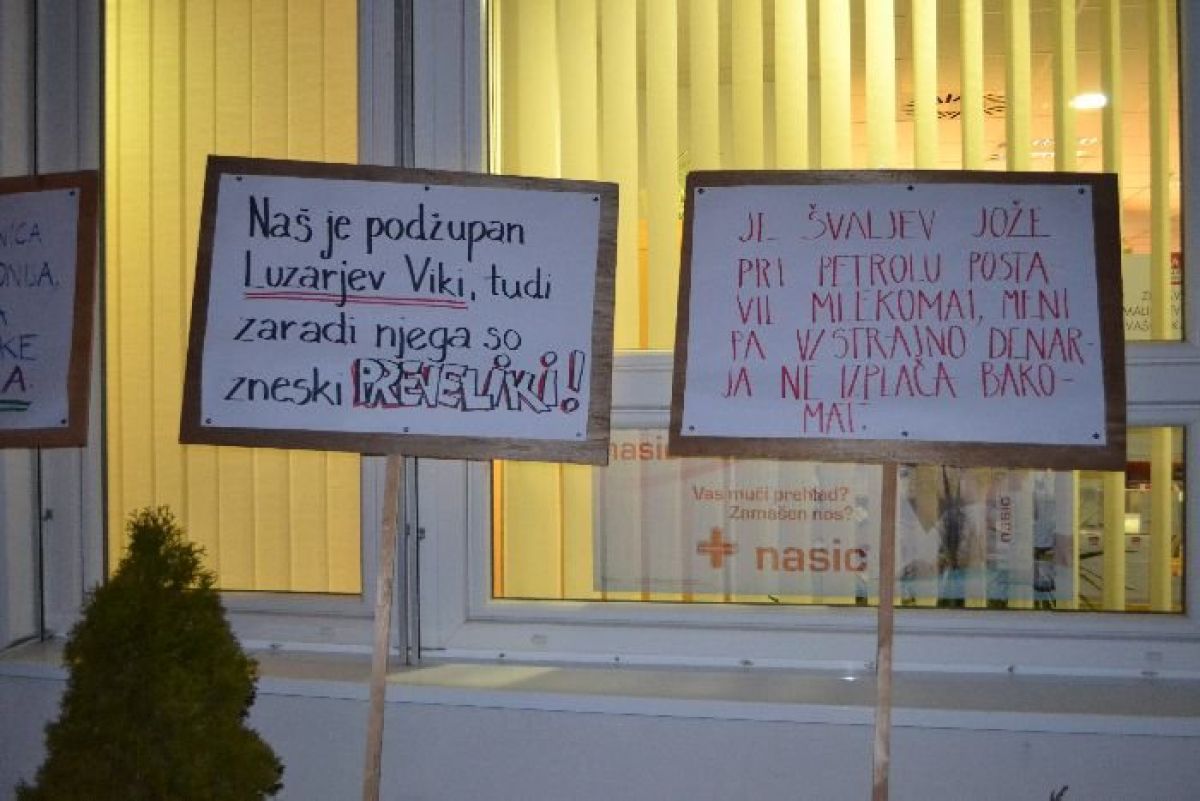 NICA
KE
A.
Naš je podžupan
Luzarjev Viki, tudi
zaradi njega so
zneski PREVELIKI!
JE ŠVALJEV JOŽE
PRI PETROLU POSTA
VIL MLEKOMAT, MENI
PA VZTRAJNO DENAR-
JA NE IZPLAČA BAKO-
MAT.
nasic
Vas muči prehlad?
Zamašen nos?
nasic
nasic